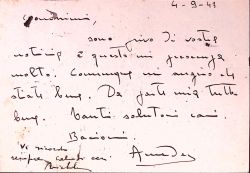 4-9-43
Carissimi,
sono privo di vostre
notizie e questo mi preoccupa
molto. Comunque mi auguro che
stiate bene. Da parte mia tutto
bene. Tanti saluti cari.
Bacioni.
Amedeo
Vi ricordo
sempre